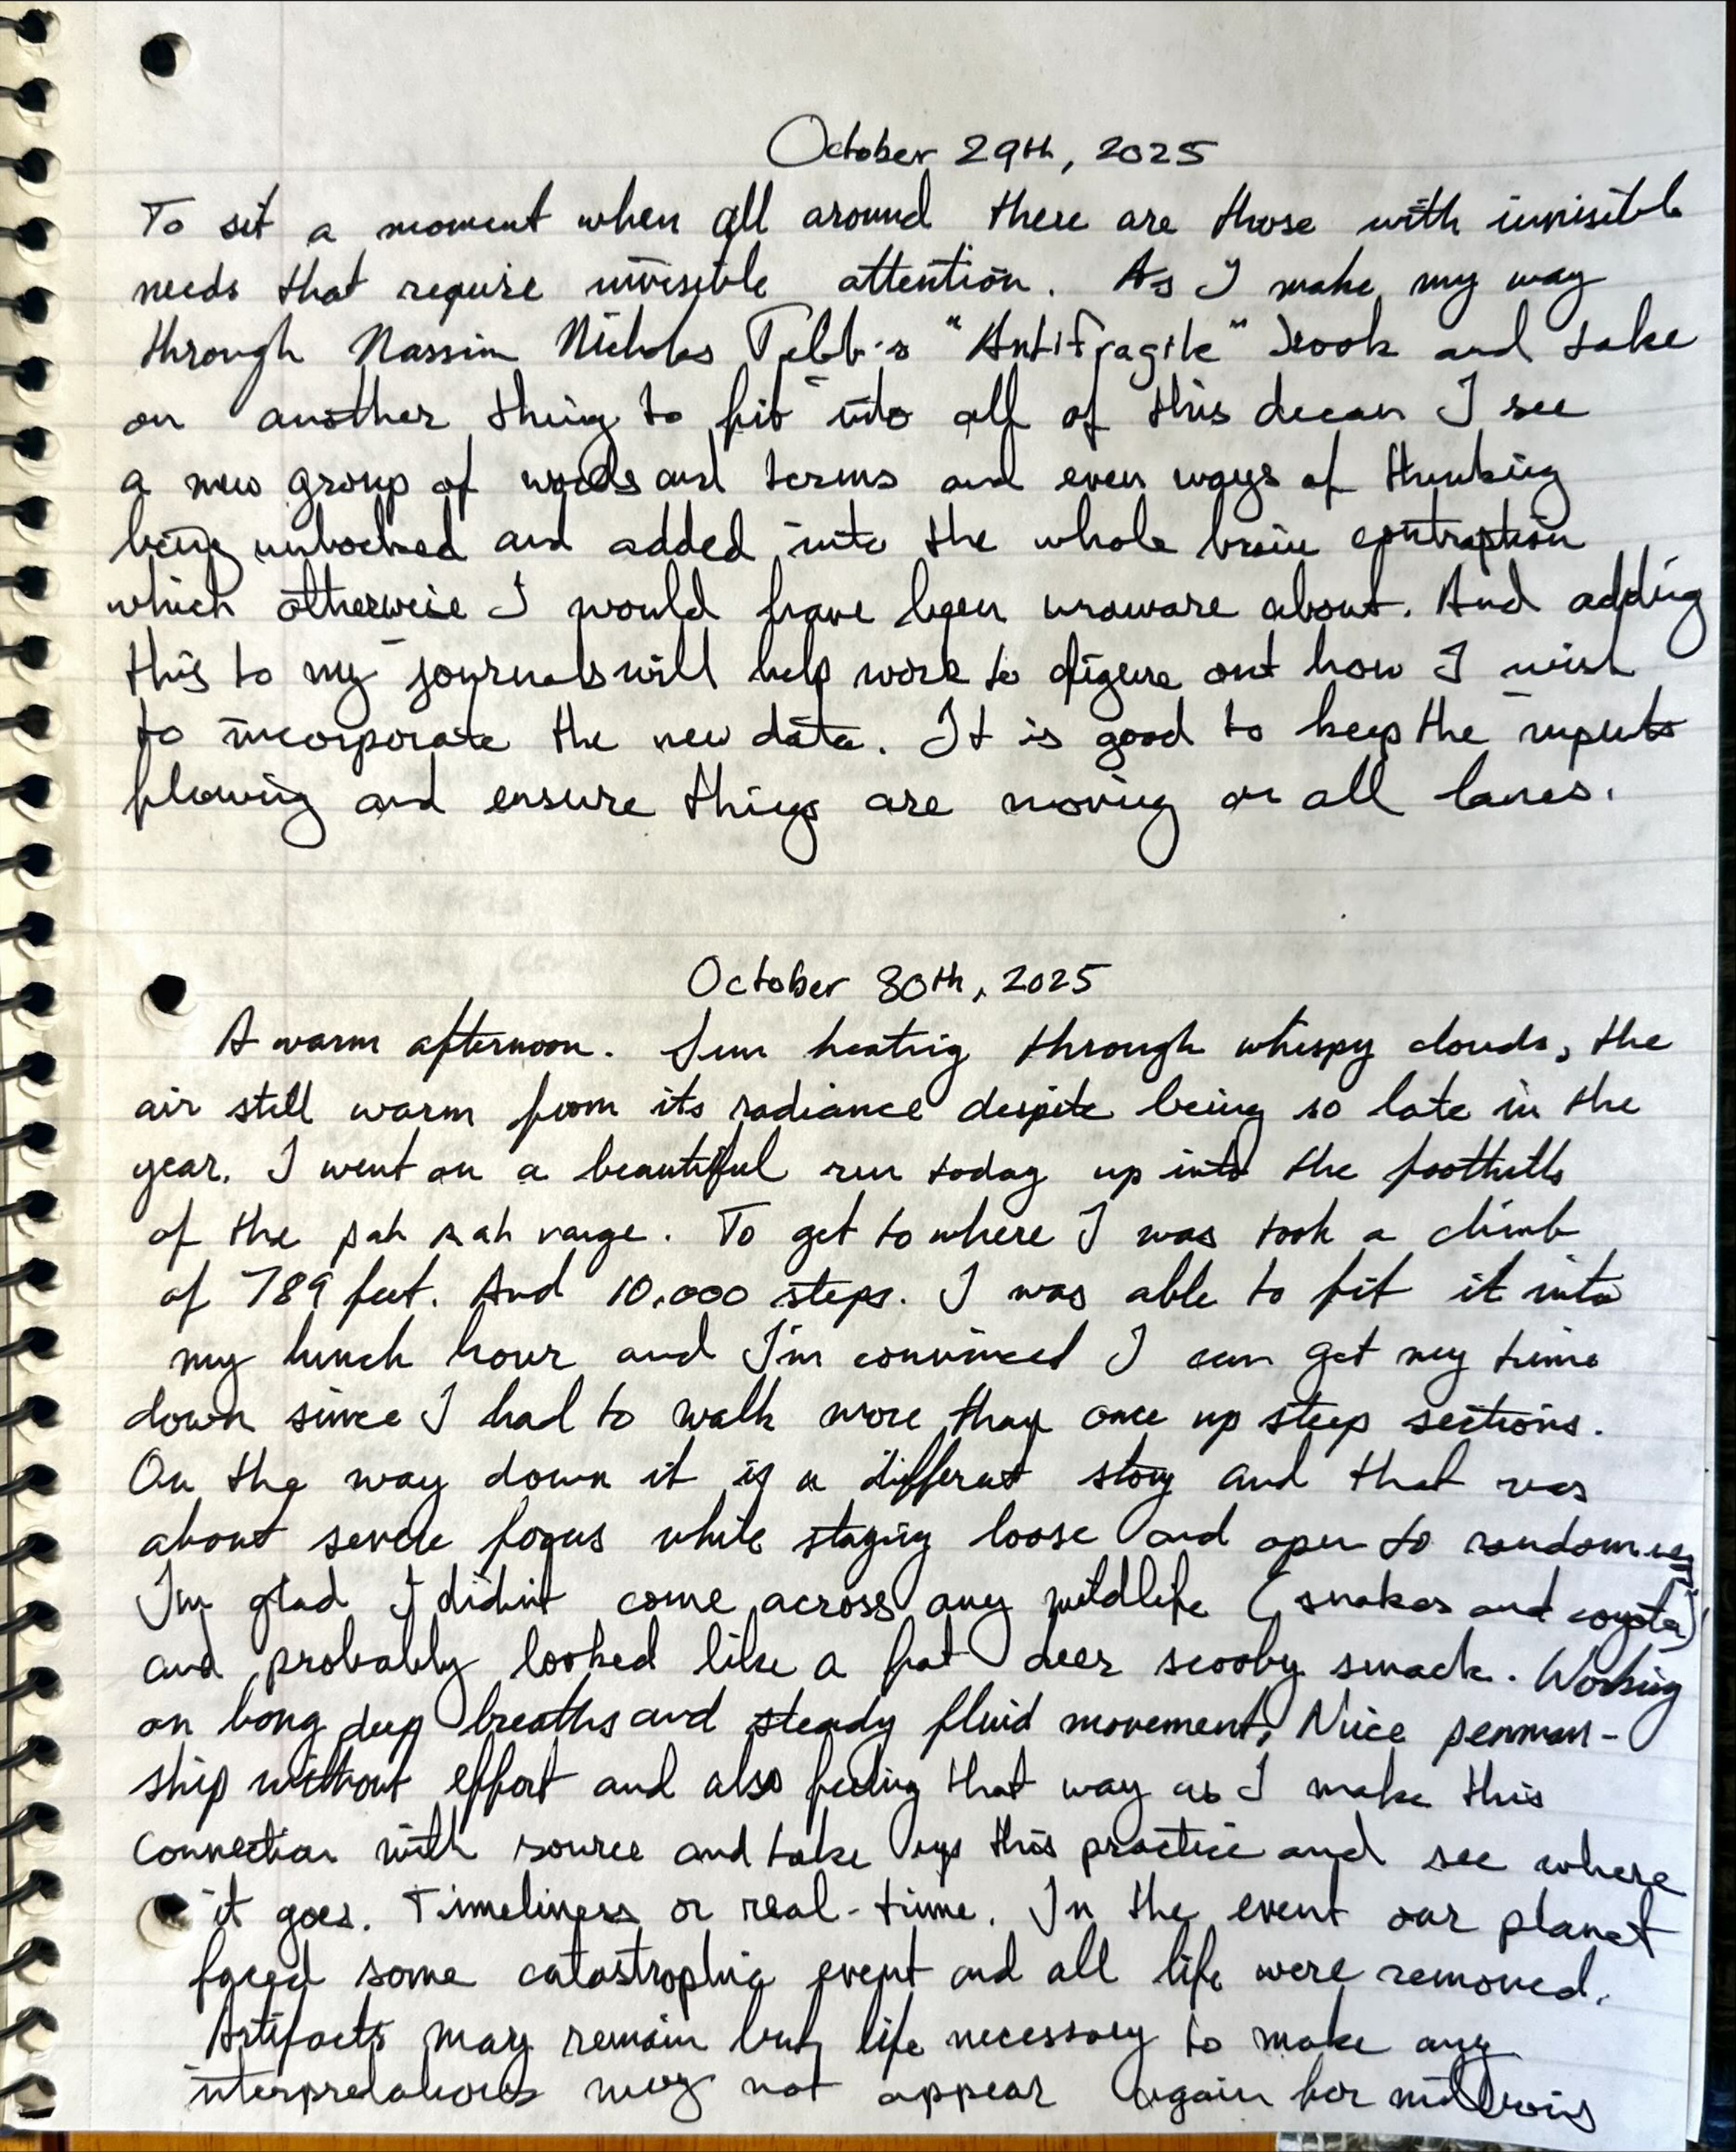 October 29th, 2025
To sit a moment when all around there are those with invisible
needs that require invisible attention. As I make my way
through Nassim Nicholas Taleb's "Antifragile" book and take
on another thing to fit into all of this decan I see
a new group of words and terms and even ways of thinking
being unlocked and added into the whole brain contraption
which otherwise I would have been unaware about. And adding
this to my journals will help work to figure out how I wish
to incorporate the new data. It is good to keep the inputs
flowing and ensure things are moving on all lanes.
October 30th, 2025
A warm afternoon. Sun heating through whispy clouds, the
air still warm from its radiance despite being so late in the
year. I went on a beautiful run today up into the foothills
of the pah rah range. To get to where I was took a climb
of 789 feet. And 10,000 steps. I was able to fit it into
my lunch hour and I'm convinced I can get my time
down since I had to walk more than once up steep sections.
On the way down it is a different story and that was
about severe focus while staying loose and open to randomness
I'm glad I didn't come across any wildlife (snakes and coyotes)
and probably looked like a fat deer scooby snack. Working
on long deep breaths and steady fluid movement, Nice penman-
ship without effort and also feeling that way as I make this
connection with source and take up this practice and see where
it goes. Timeliness or real-time. In the event our planet
faced some catastrophic event and all life were removed.
Artifacts may remain but life necessary to make any
interpretations may not appear again for millions